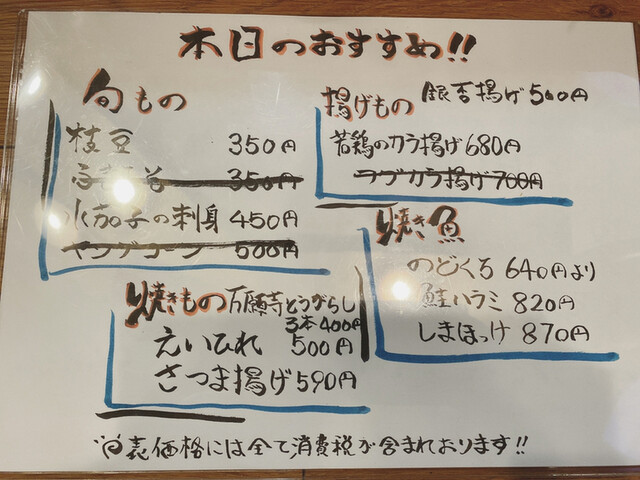 本日のおすすめ!!
旬もの
枝豆 350円
350円
水茄子の刺身 450円
ヤングコーン 500円
揚げもの 銀杏揚げ 500円
若鶏のカラ揚げ 680円
フグカラ揚げ 700円
焼き魚
のどくろ 640円より
鮭ハラミ 820円
しまほっけ 870円
焼きもの 万願寺とうがらし
3本400円
えいひれ 500円
さつま揚げ 590円
表価格には全て消費税が含まれております!!